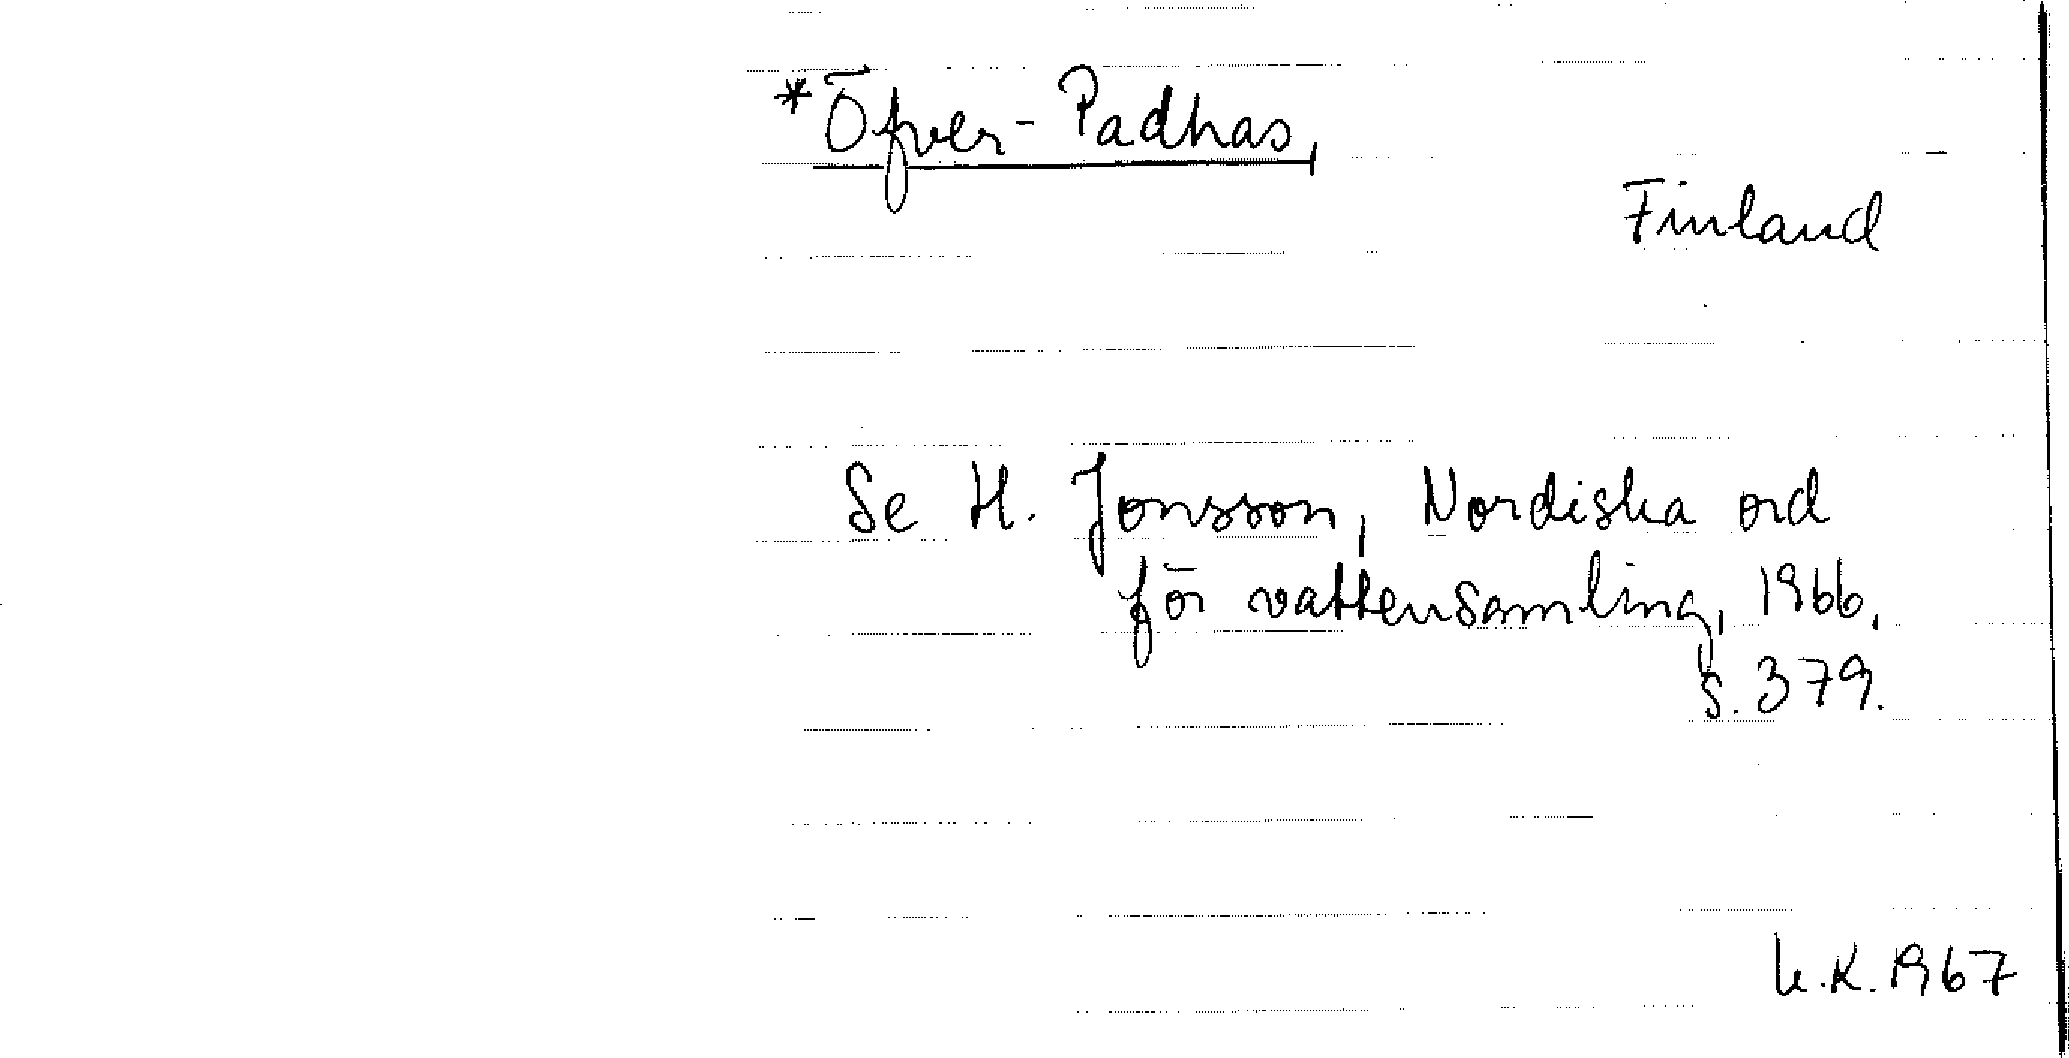 *Öfver-Padhas,
Finland
Se H. Jonsson, Nordiska ord
för vattensamling, 1966,
s. 379.
K.K. 1967